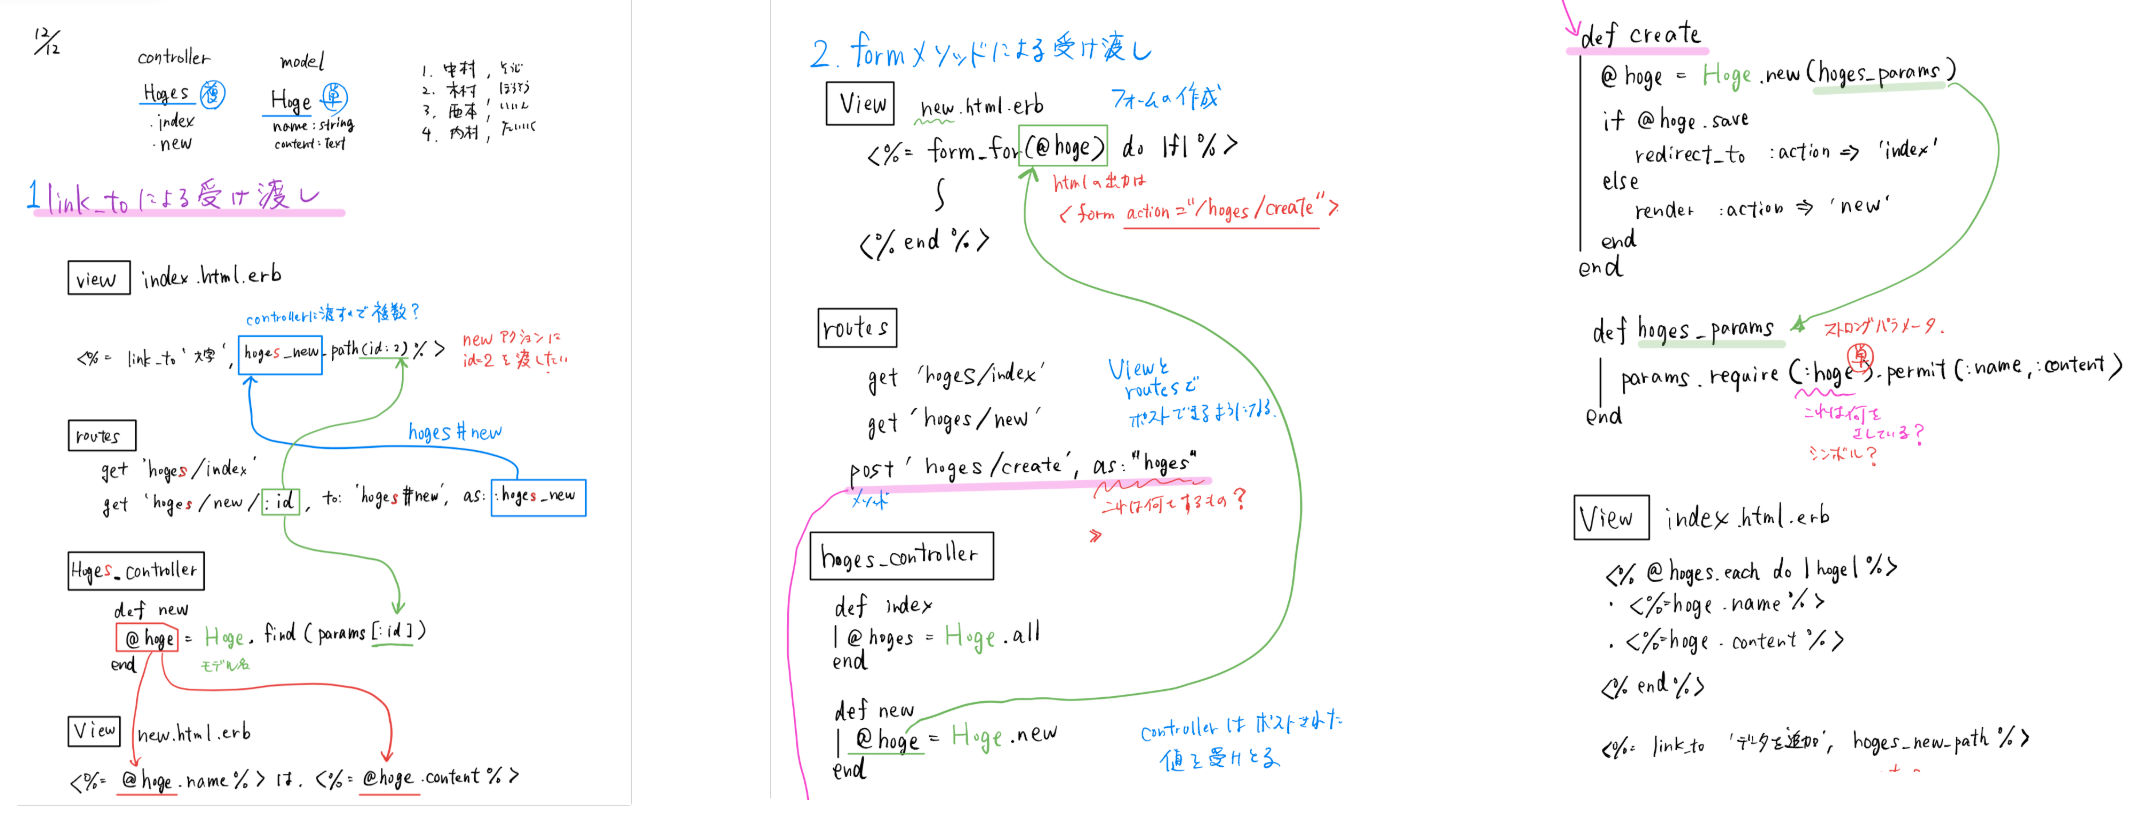 12/12
controller
Hoges 複
・index
・new
model
Hoge 単
name:string
content:Text
1. 中村,
2. 木村, ほうとう
3. 西本, いいん
4. 内村, たいいく
1 link_toによる受け渡し
view index.html.erb
controllerに渡すので複数?
<%= link_to '文字', hoges_new_path(id:2)%>
newアクションに
id=2を渡したい
routes
hoges#new
get 'hoges/index'
get 'hoges/new/:id, to: 'hoges#new', as: :hoges_new
Hoges_controller
def new
@hoge = Hoge.find(params[:id])
end
モデル名
View new.html.erb
<%= @hoge.name%>は、<%= @hoge.content%>
2. formメソッドによる受け渡し
View new.html.erb フォームの作成
<%= form_for(@hoge) do |f| %>
htmlの出力は
<form action="/hoges/create">
<% end %>
routes
get 'hoges/index'
get 'hoges/new'
Viewと
routesで
ポストできるようになる.
post 'hoges/create', as:"hoges"
メソッド
これは何をするもの?
»
hoges_controller
def index
@hoges = Hoge.all
end
def new
@hoge = Hoge.new
end
controllerはポストされた
値を受けとる
def create
@hoge = Hoge.new(hoges_params)
if @hoge.save
redirect_to :action => 'index'
else
render :action => 'new'
end
end
def hoges_params
ストロングパラメータ.
単
params.require(:hoge).permit(:name,:content)
end
これは何を
さしている?
シンボル?
View index.html.erb
<% @hoges.each do |hoge| %>
・<%=hoge.name%>
・<%=hoge.content%>
<% end%>
<%= link_to 'データを追加', hoges_new_path %>